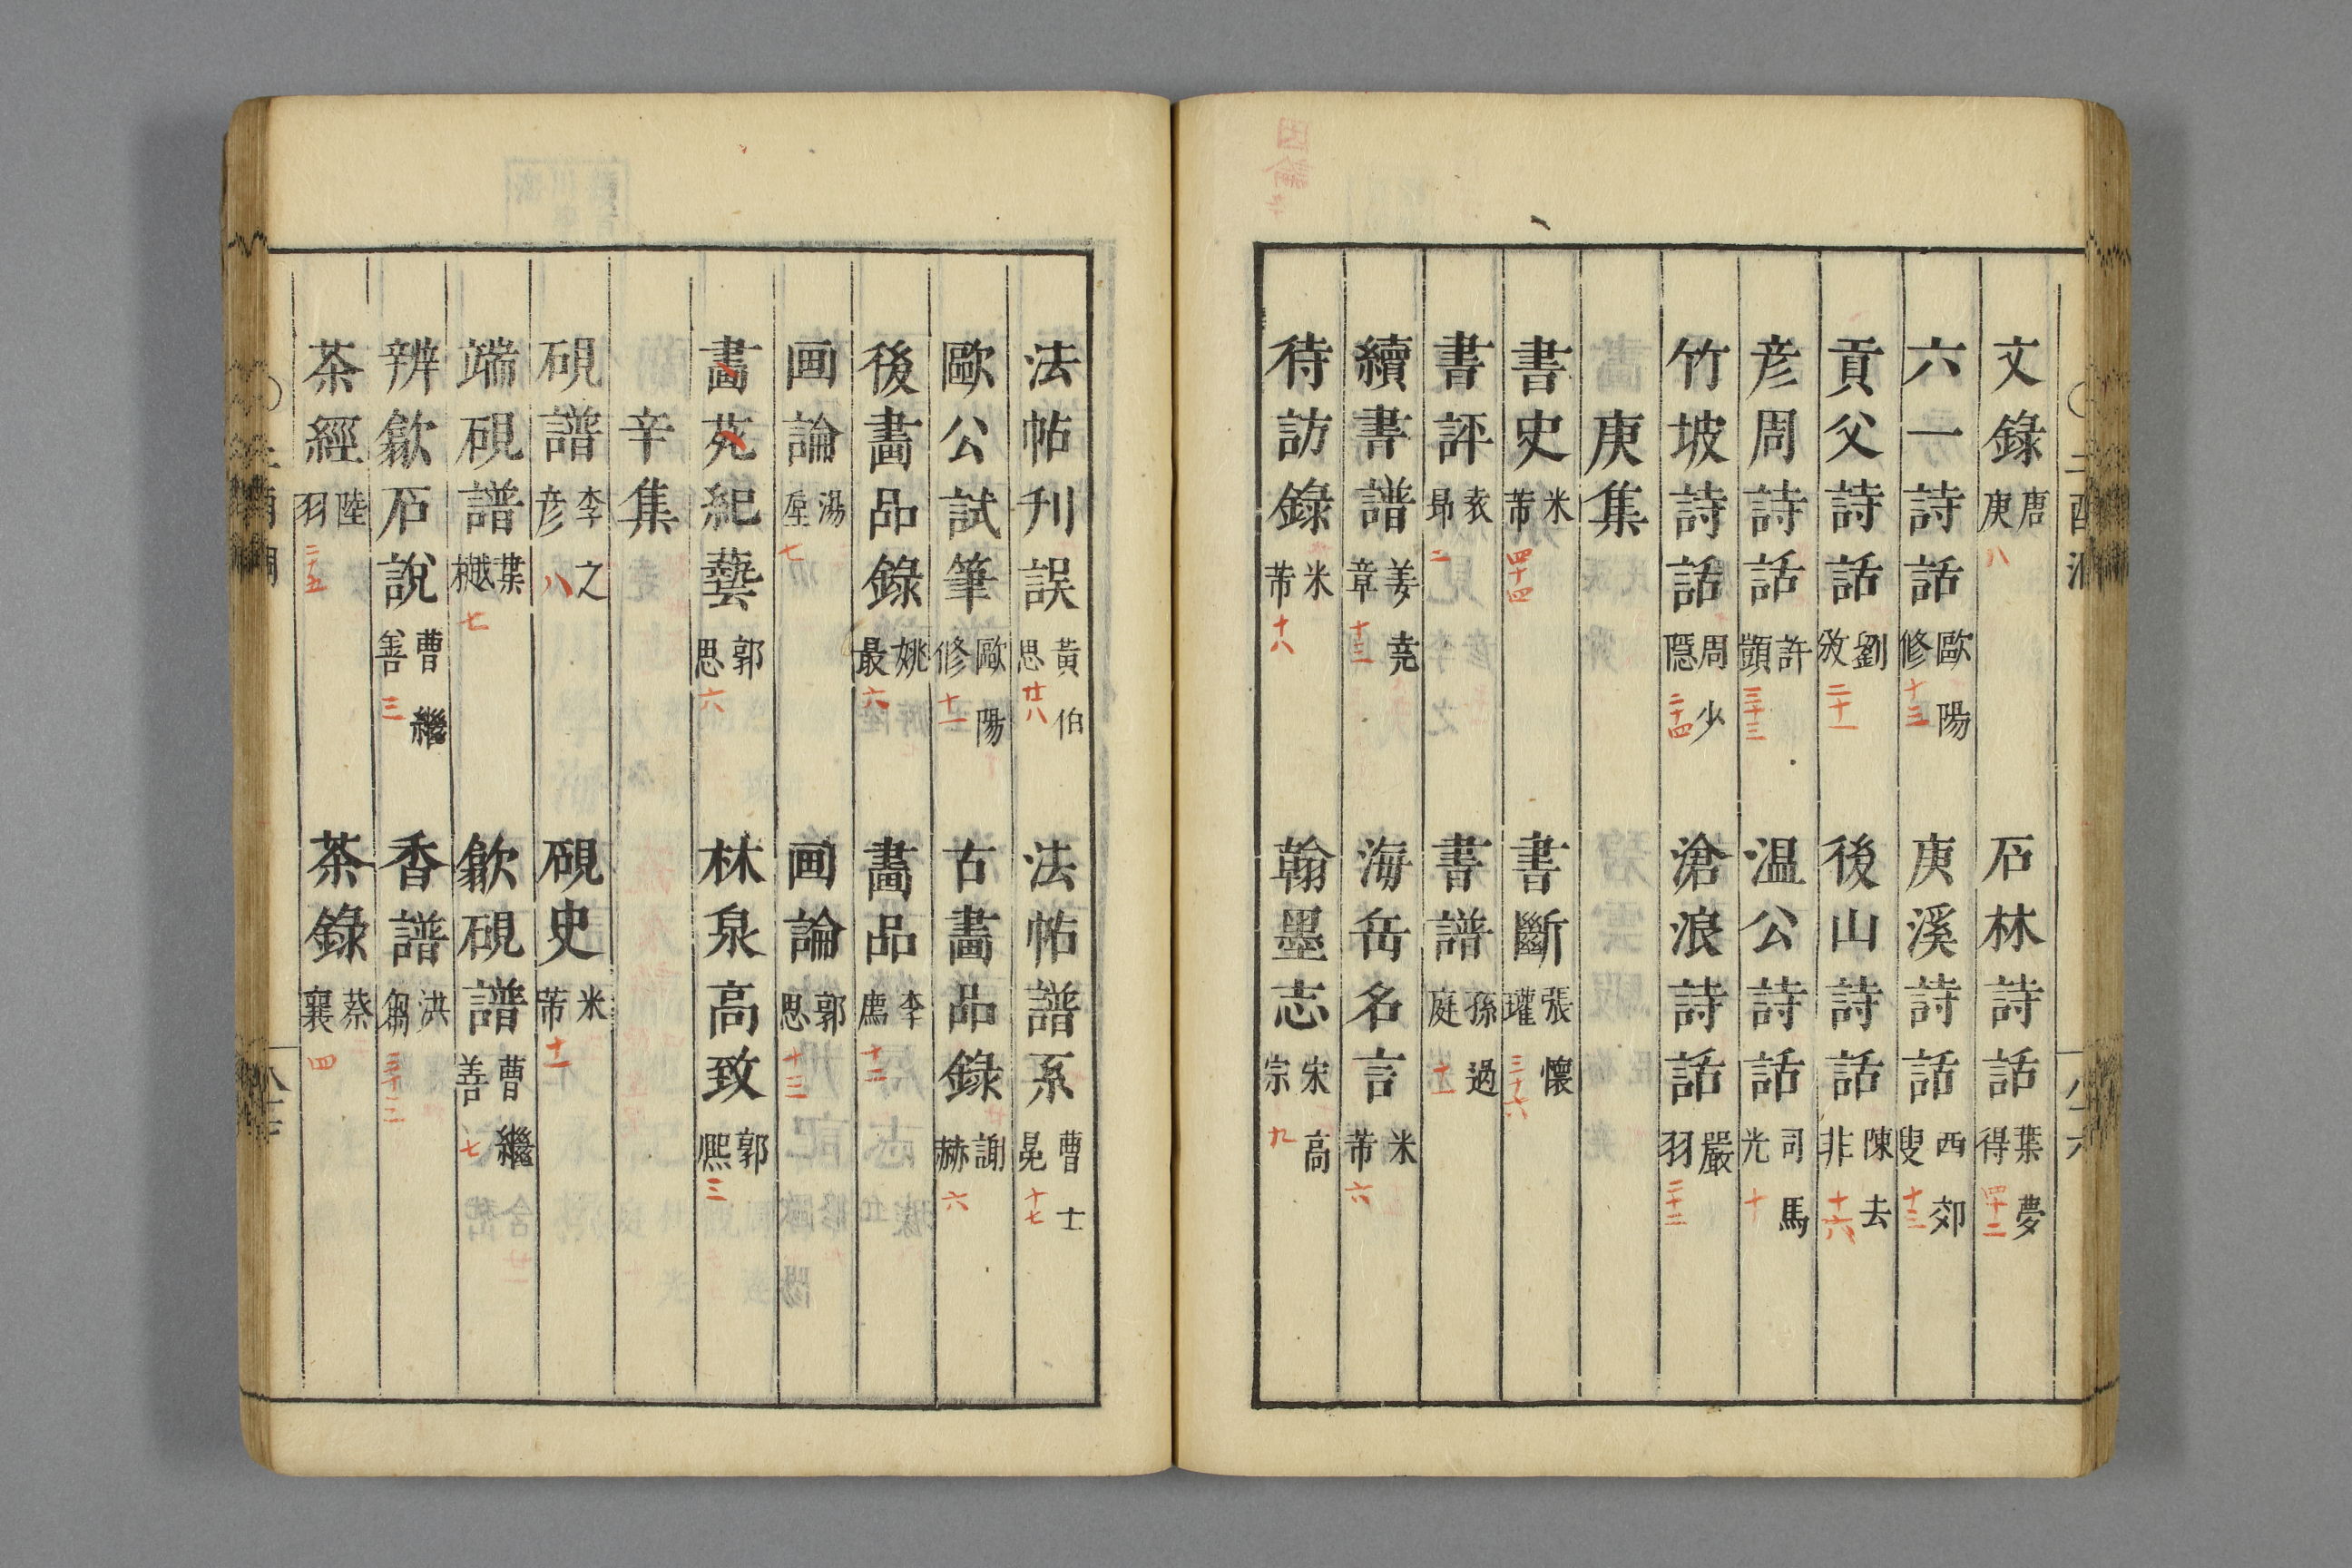 文錄 唐庚 八 石林詩話 葉夢得 四十二
六一詩話 歐陽修 十三 庚溪詩話 西郊叟 十三
貢父詩話 劉攽 二十一 後山詩話 陳去非 十六
彦周詩話 許顗 三十三 温公詩話 司馬光 十
竹坡詩話 周少隱 二十四 滄浪詩話 嚴羽 二十二
庚集
書史 米芾 四十四 書斷 張懷瓘 三十六
書評 袁昻 二 書譜 孫過庭 十一
續書譜 姜堯章 十三 海岳名言 米芾 六
待訪錄 米芾 十八 翰墨志 宋高宗 九
法帖刋誤 黃伯思 廿八 法帖譜系 曹士冕 十七
歐公試筆 歐陽修 十一 古畵品錄 謝赫 六
後畵品錄 姚最 六 畵品 李廌 十二
画論 湯垕 七 画論 郭思 十三
畵苑紀藝 郭思 六 林泉高致 郭熈 三
辛集
硯譜 李之彦 八 硯史 米芾 十一
端硯譜 葉樾 七 歙硯譜 曹繼善 七
辨歙石說 曹繼善 三 香譜 洪芻 三十三
茶經 陸羽 二十五 茶錄 蔡襄 四